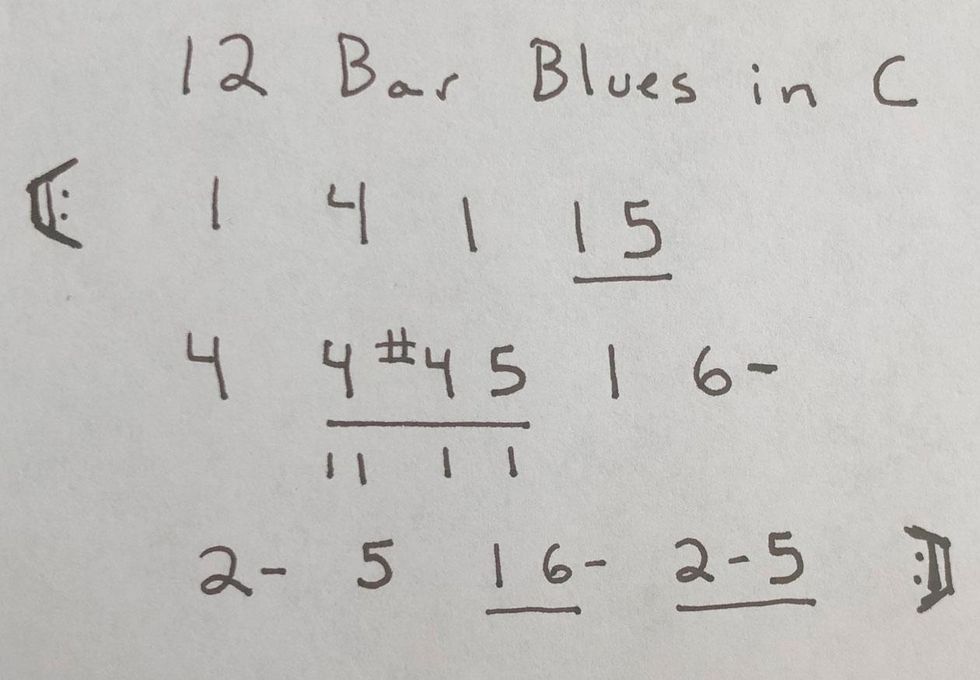 12 Bar Blues in C
1 4 1 1 5
4 4 #4 5 1 6-
11 1 1
2- 5 1 6- 2-5